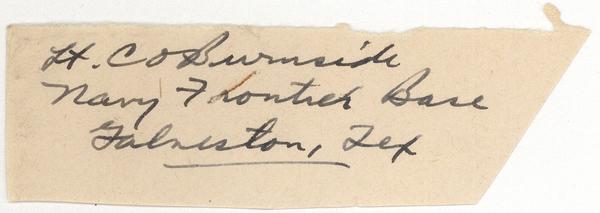 Lt. C O Burnside
Navy Frontier Base
Galveston, Tex